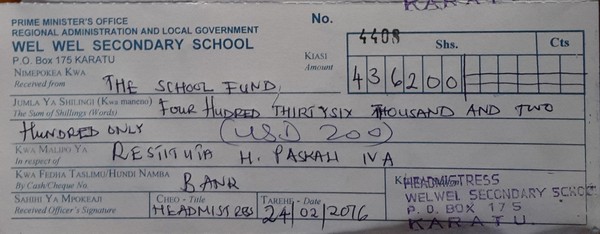 KARATU
PRIME MINISTER'S OFFICE
REGIONAL ADMINISTRATION AND LOCAL GOVERNMENT
WEL WEL SECONDARY SCHOOL
P.O. Box 175 KARATU
No. 4408
Shs. Cts
KIASI
Amount
436200
NIMEPOKEA KWA
Received from THE SCHOOL FUND,
JUMLA YA SHILINGI (Kwa maneno)
The Sum of Shillings (Words) FOUR HUDRED THIRTYSIX THOUSAND AND TWO
HUNDRED ONLY (USD 200)
KWA MALIPO YA
In respect of RESTITUTA H. PASKALI IVA
KWA FEDHA TASLIMU/HUNDI NAMBA
By Cash/Cheque No. BANK
SAHIHI YA MPOKEAJI
Received Officer's Signature
CHEO - Title
HEADMISTRESS
TAREHE - Date
24/02/2016
HEADMISTRESS
WELWEL SECONDARY SCHOO
P. O. BOX 175
KARATU.